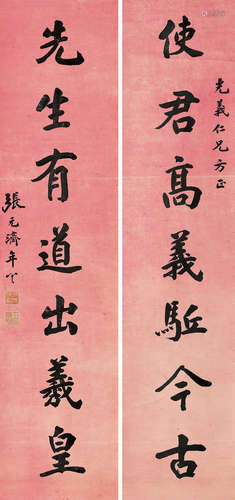 使君髙義駈今古
義仁兄方正
先生有道出羲皇
張元濟